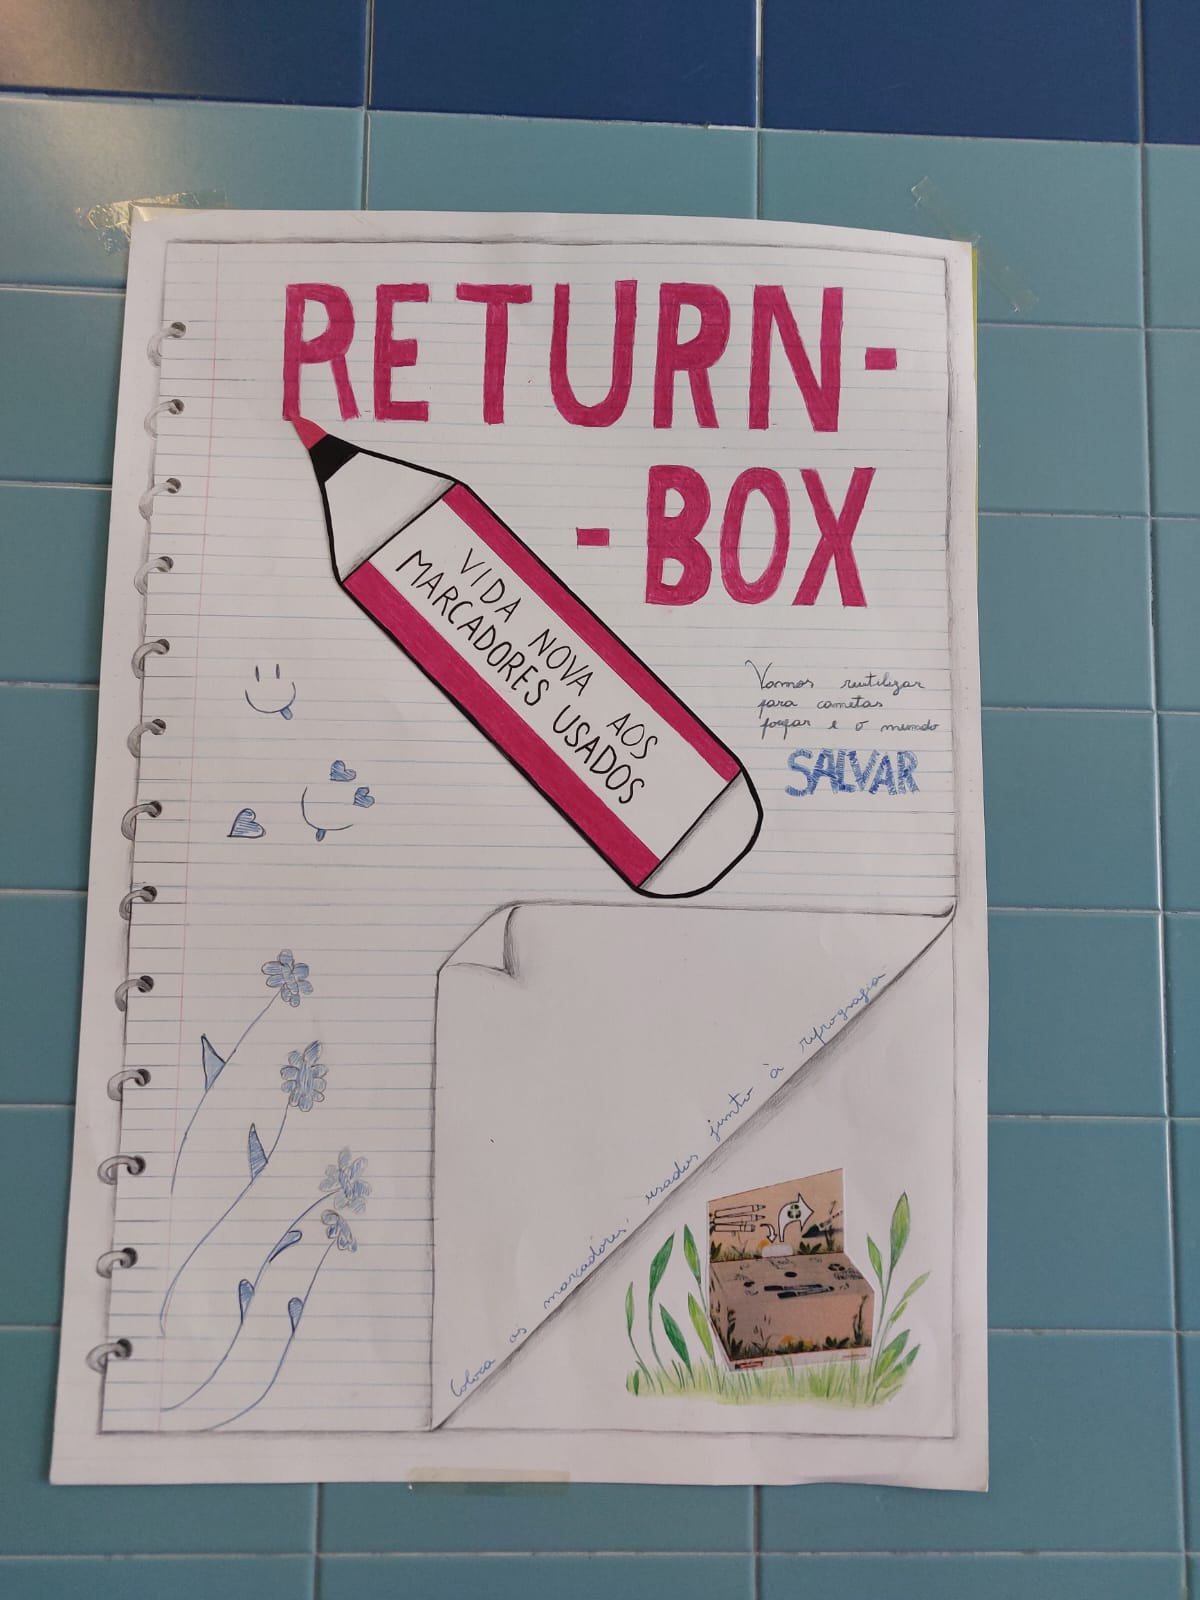 RETURN-
-BOX
VIDA NOVA AOS
MARCADORES USADOS
Vamos reutilizar
para canetas
forjar e o mundo
SALVAR
Coloca os marcadores usados junto à reprografia